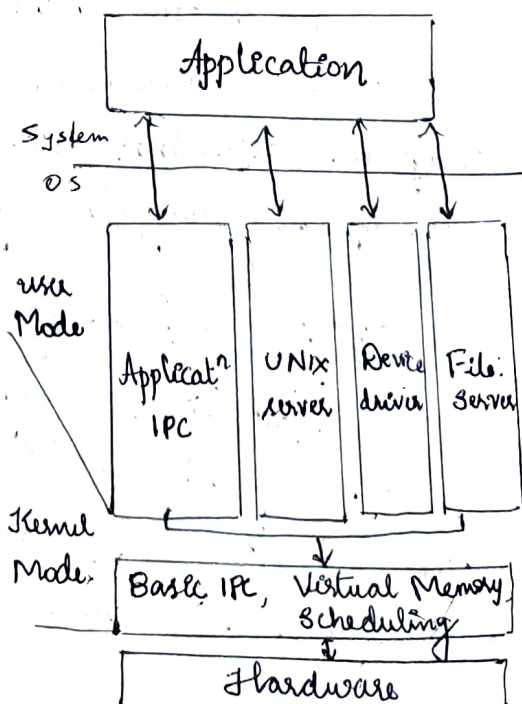 Application
System
OS
User
Mode
Applicatⁿ
IPC
UNIX
server
Device
driver
File
Server
Kernel
Mode
Basic IPC, Virtual Memory,
Scheduling
Hardware